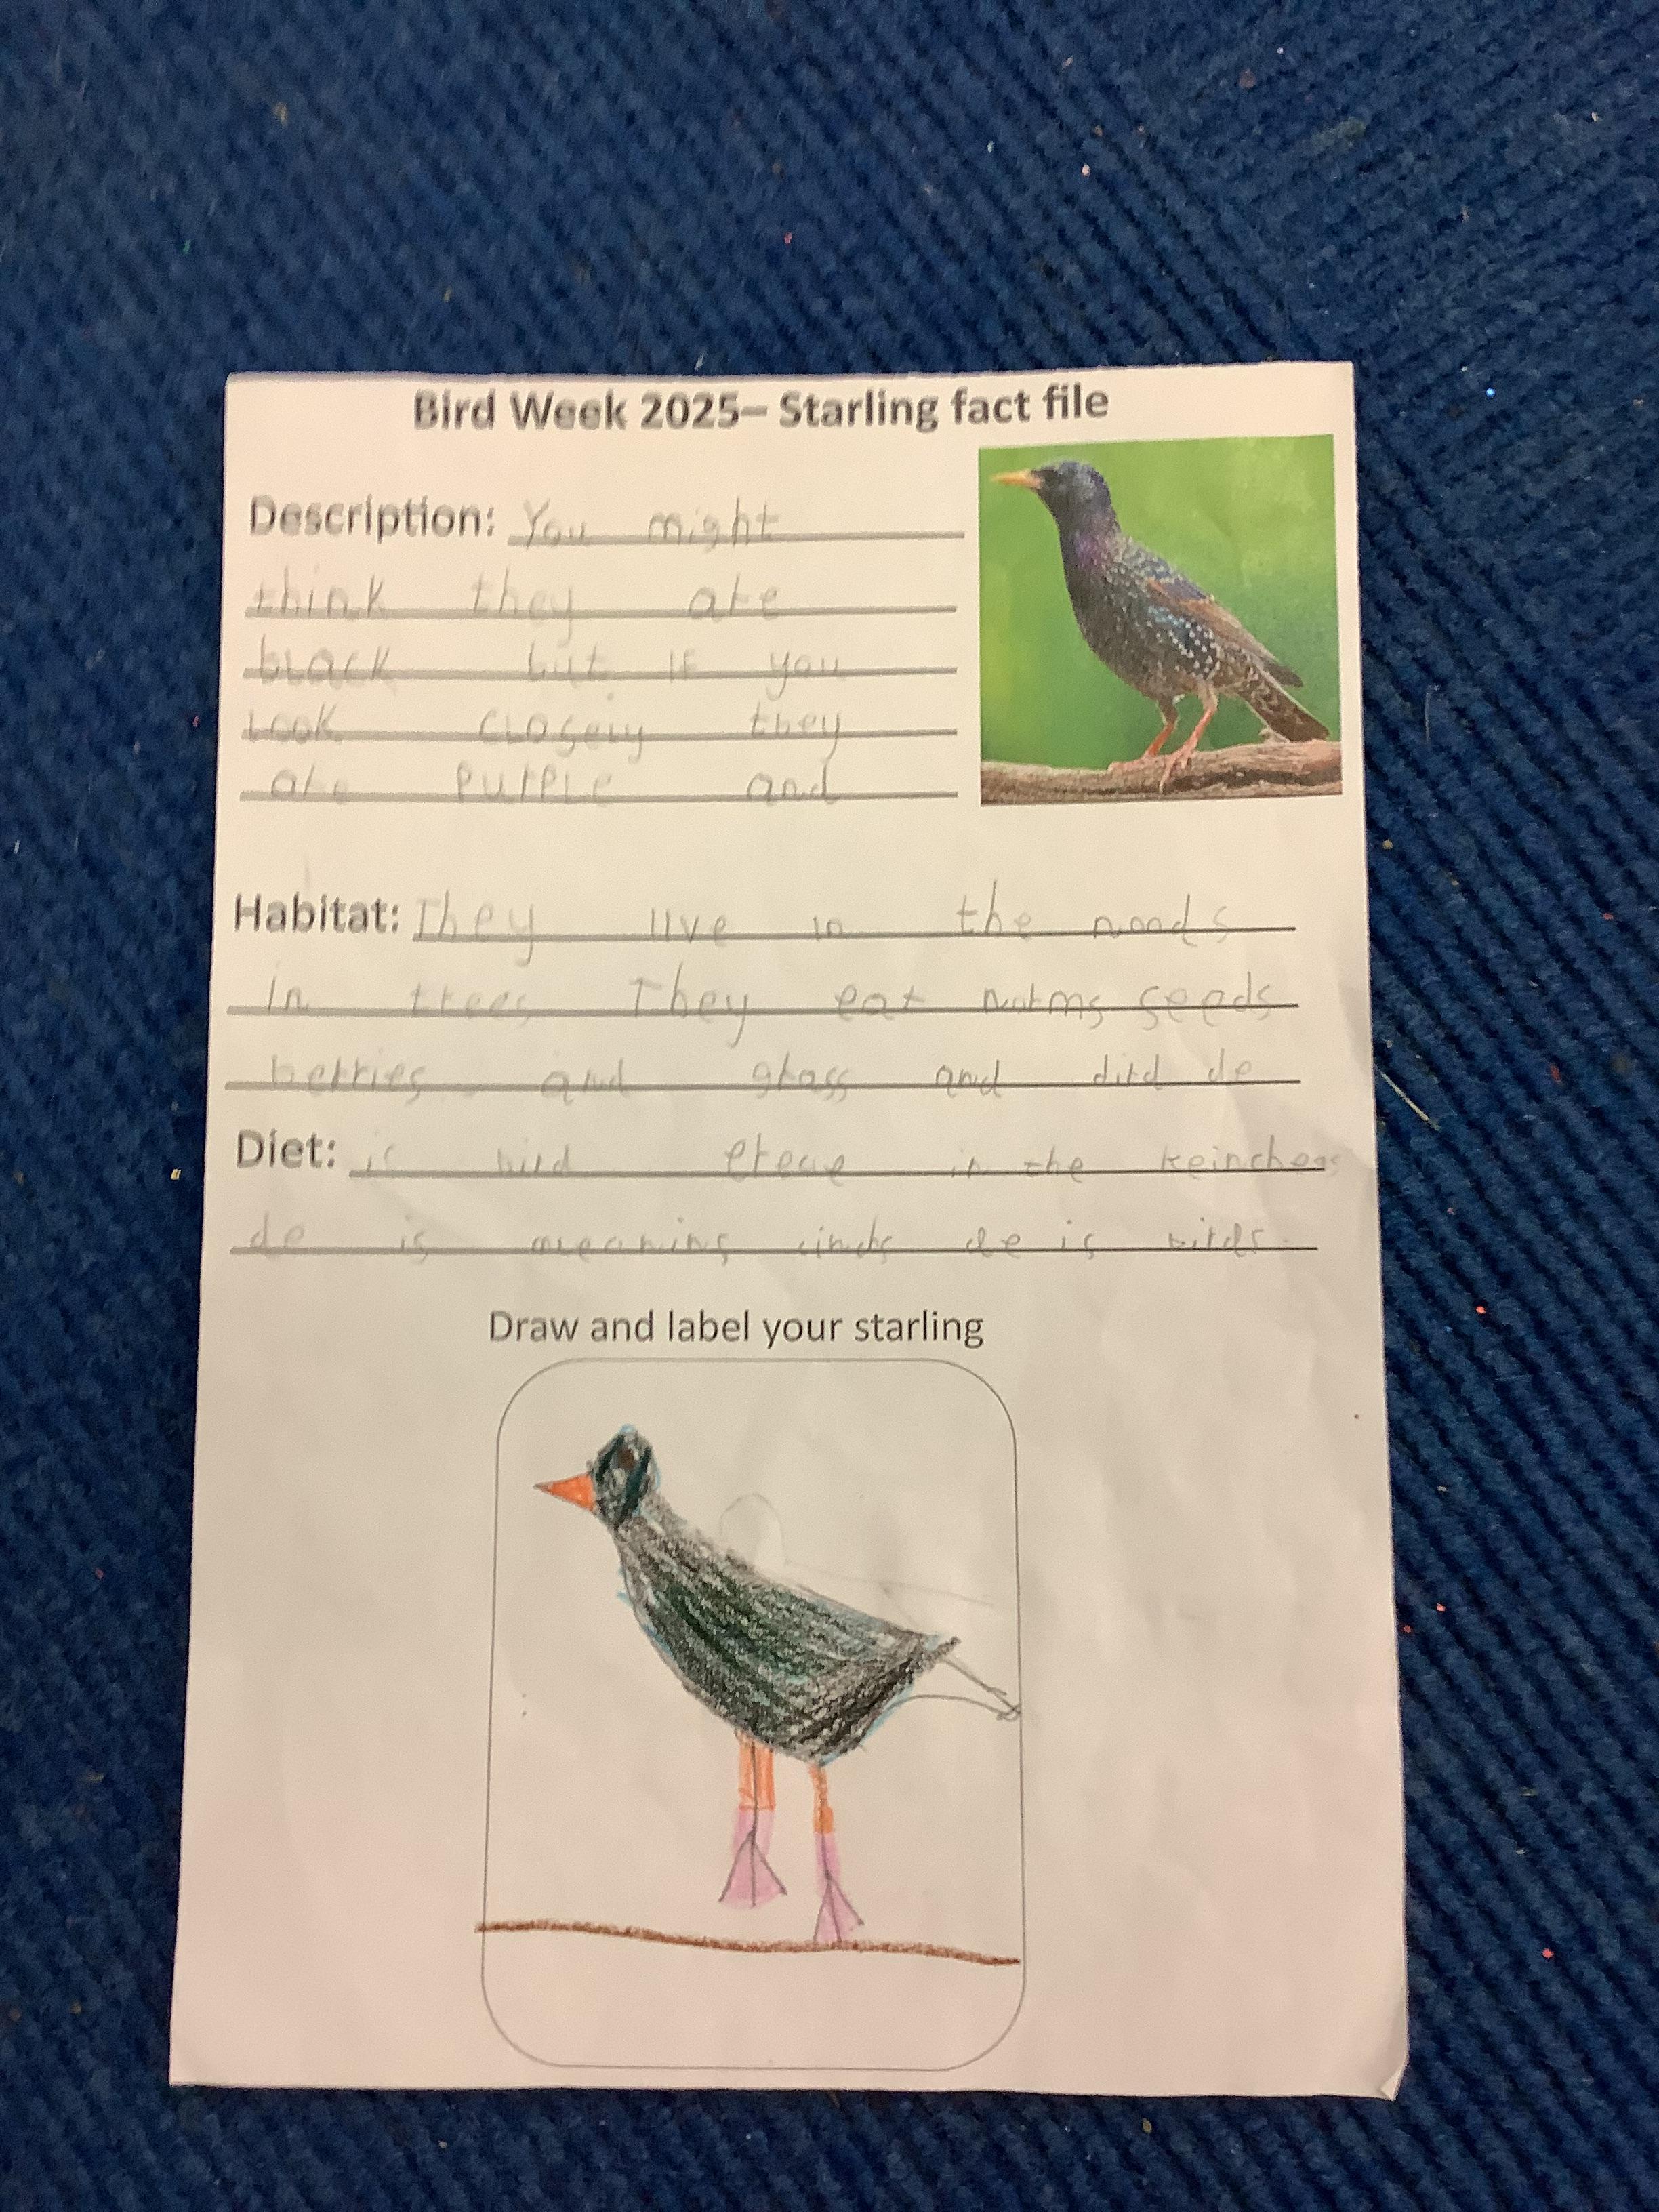 Bird Week 2025– Starling fact file
Description: You might
think they are
black but if you
Look closely they
are purple and
Habitat: They live in the woods
in trees They eat worms seeds
berries and grass and dird de
Diet: is bird in the
de is meaning de is birds.
Draw and label your starling